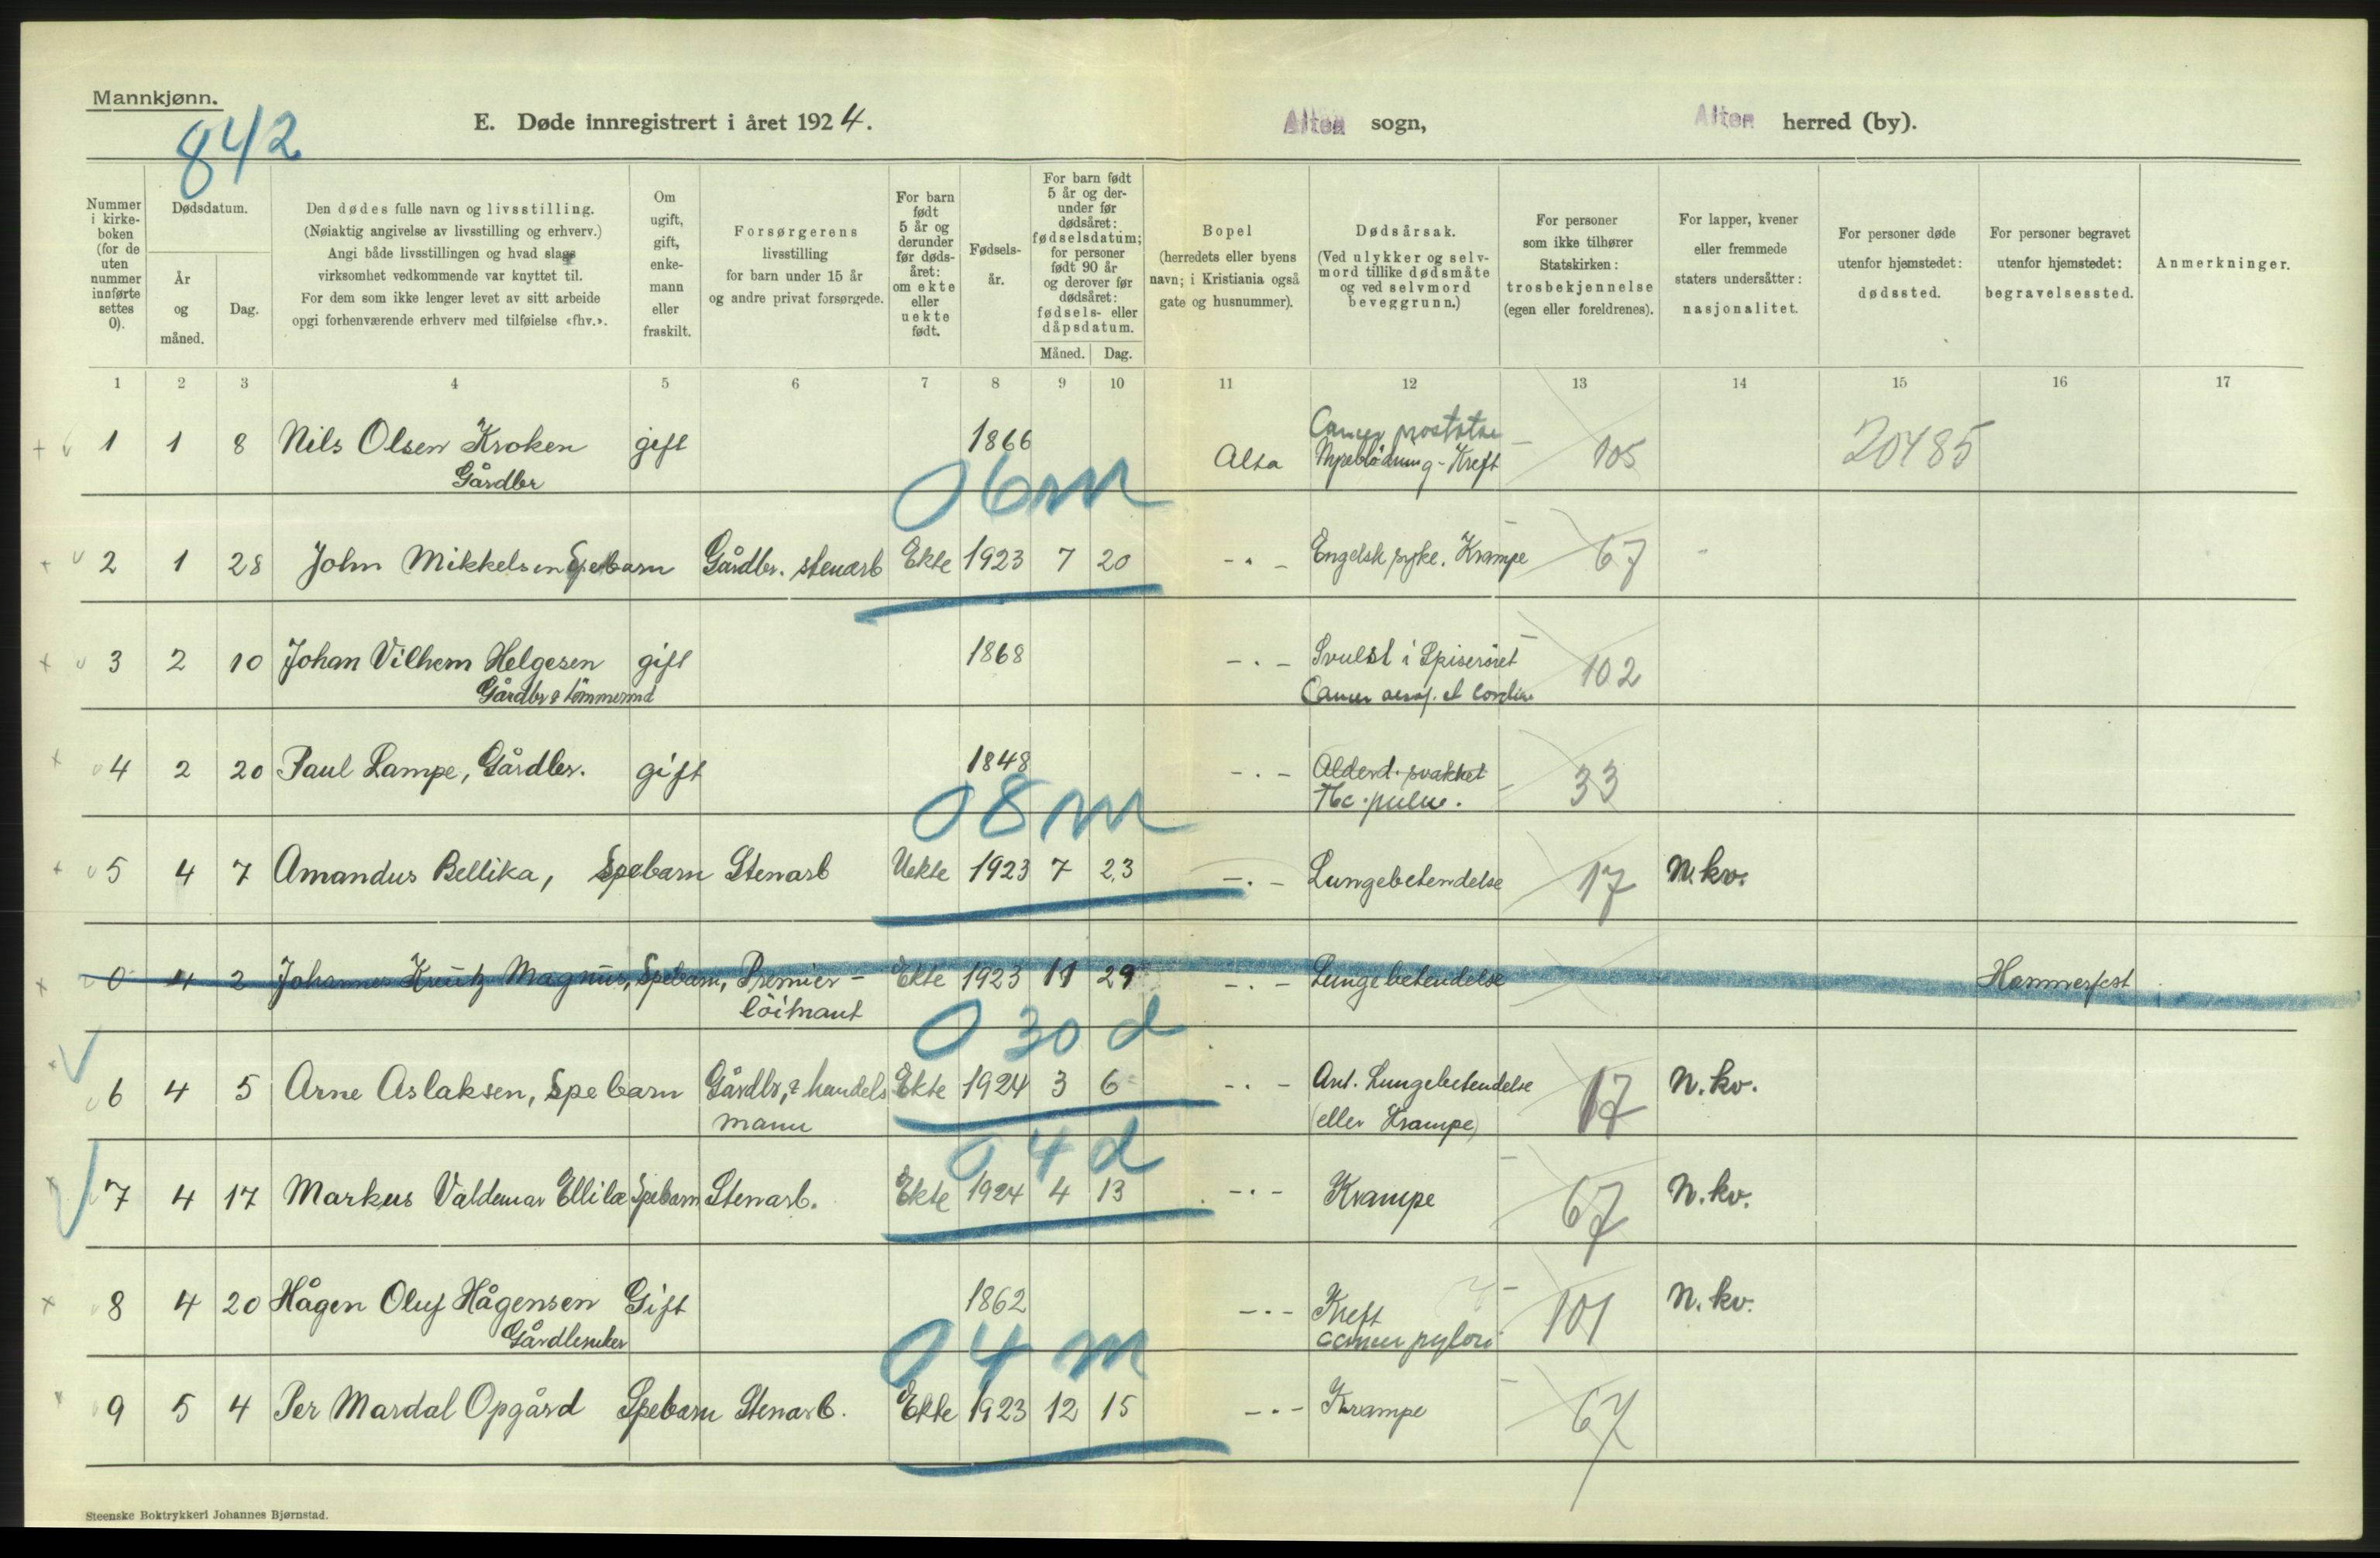 Mannkjønn.
842
E. Døde innregistrert i året 1924.
Alten sogn,
Alten herred (by).
Nummer i kirkeboken (for de uten nummer innførte settes 0).
Dødsdatum.
År og måned.
Dag.
Den dødes fulle navn og livsstilling.
(Nøiaktig angivelse av livsstilling og erhverv.)
Angi både livsstillingen og hvad slags
virksomhet vedkommende var knyttet til.
For dem som ikke lenger levet av sitt arbeide
opgi forhenværende erhverv med tilføielse «fhv.».
Om ugift, gift, enkemann eller fraskilt.
Forsørgerens
livsstilling
for barn under 15 år
og andre privat forsørgede.
For barn født 5 år og derunder før dødsåret: om ekte eller uekte født.
Fødselsår.
For barn født 5 år og derunder før dødsåret: fødselsdatum; for personer født 90 år og derover før dødsåret: fødsels- eller dåpsdatum.
Måned. Dag.
Bopel
(herredets eller byens
navn; i Kristiania også
gate og husnummer).
Dødsårsak.
(Ved ulykker og selvmord tillike dødsmåte og ved selvmord beveggrunn.)
For personer
som ikke tilhører
Statskirken:
trosbekjennelse
(egen eller foreldrenes).
For lapper, kvener
eller fremmede
staters undersåtter:
nasjonalitet.
For personer døde
utenfor hjemstedet:
dødssted.
For personer begravet
utenfor hjemstedet:
begravelsessted.
Anmerkninger.
1 2 3 4 5 6 7 8 9 10 11 12 13 14 15 16 17
Cancer prostatae
1 1 8 Nils Olsen Kroken gift 1866 Alta Kreft 105 20485
Gårdbr
06m
2 1 28 John Mikkelsen Spebarn Gårdbr. stenarb Ekte 1923 7 20 -.- Engelsk syke. Krampe 67
3 2 10 Johan Vilhem Helgesen gift 1868 -.- Svulst i Spiserøret 102
Gårdbr & tømmermd Cancer oesof. et cardiae
4 2 20 Paul Lampe, Gårdbr. gift 1848 -.- Alderd. svakhet 33
Tbc. pulm.
08m
5 4 7 Amandus Bellika, Spebarn Stenarb Uekte 1923 7 23 -.- Lungebetendelse 17 N. kv.
0 4 2 Johannes Magnus, Spebarn, Premier- Ekte 1923 11 29 -.- Lungebetendelse Hammerfest
löitnant
0 30 d
6 4 5 Arne Aslaksen, Spebarn Gårdbr, & handels Ekte 1924 3 6 -.- Ant. Lungebetendelse 17 N. kv.
mann (eller Krampe)
0 4 d
7 4 17 Markus Valdemar Ellilæ Spebarn Stenarb. Ekte 1924 4 13 -.- Krampe 67 N. kv.
8 4 20 Hågen Oluf Hågensen Gift 1862 -.- Kreft 101 N. kv.
Gårdbruker cancer pylori
04 m
9 5 4 Per Mardal Opgård Spebarn Stenarb. Ekte 1923 12 15 -.- Krampe 67
Steenske Boktrykkeri Johannes Bjørnstad.